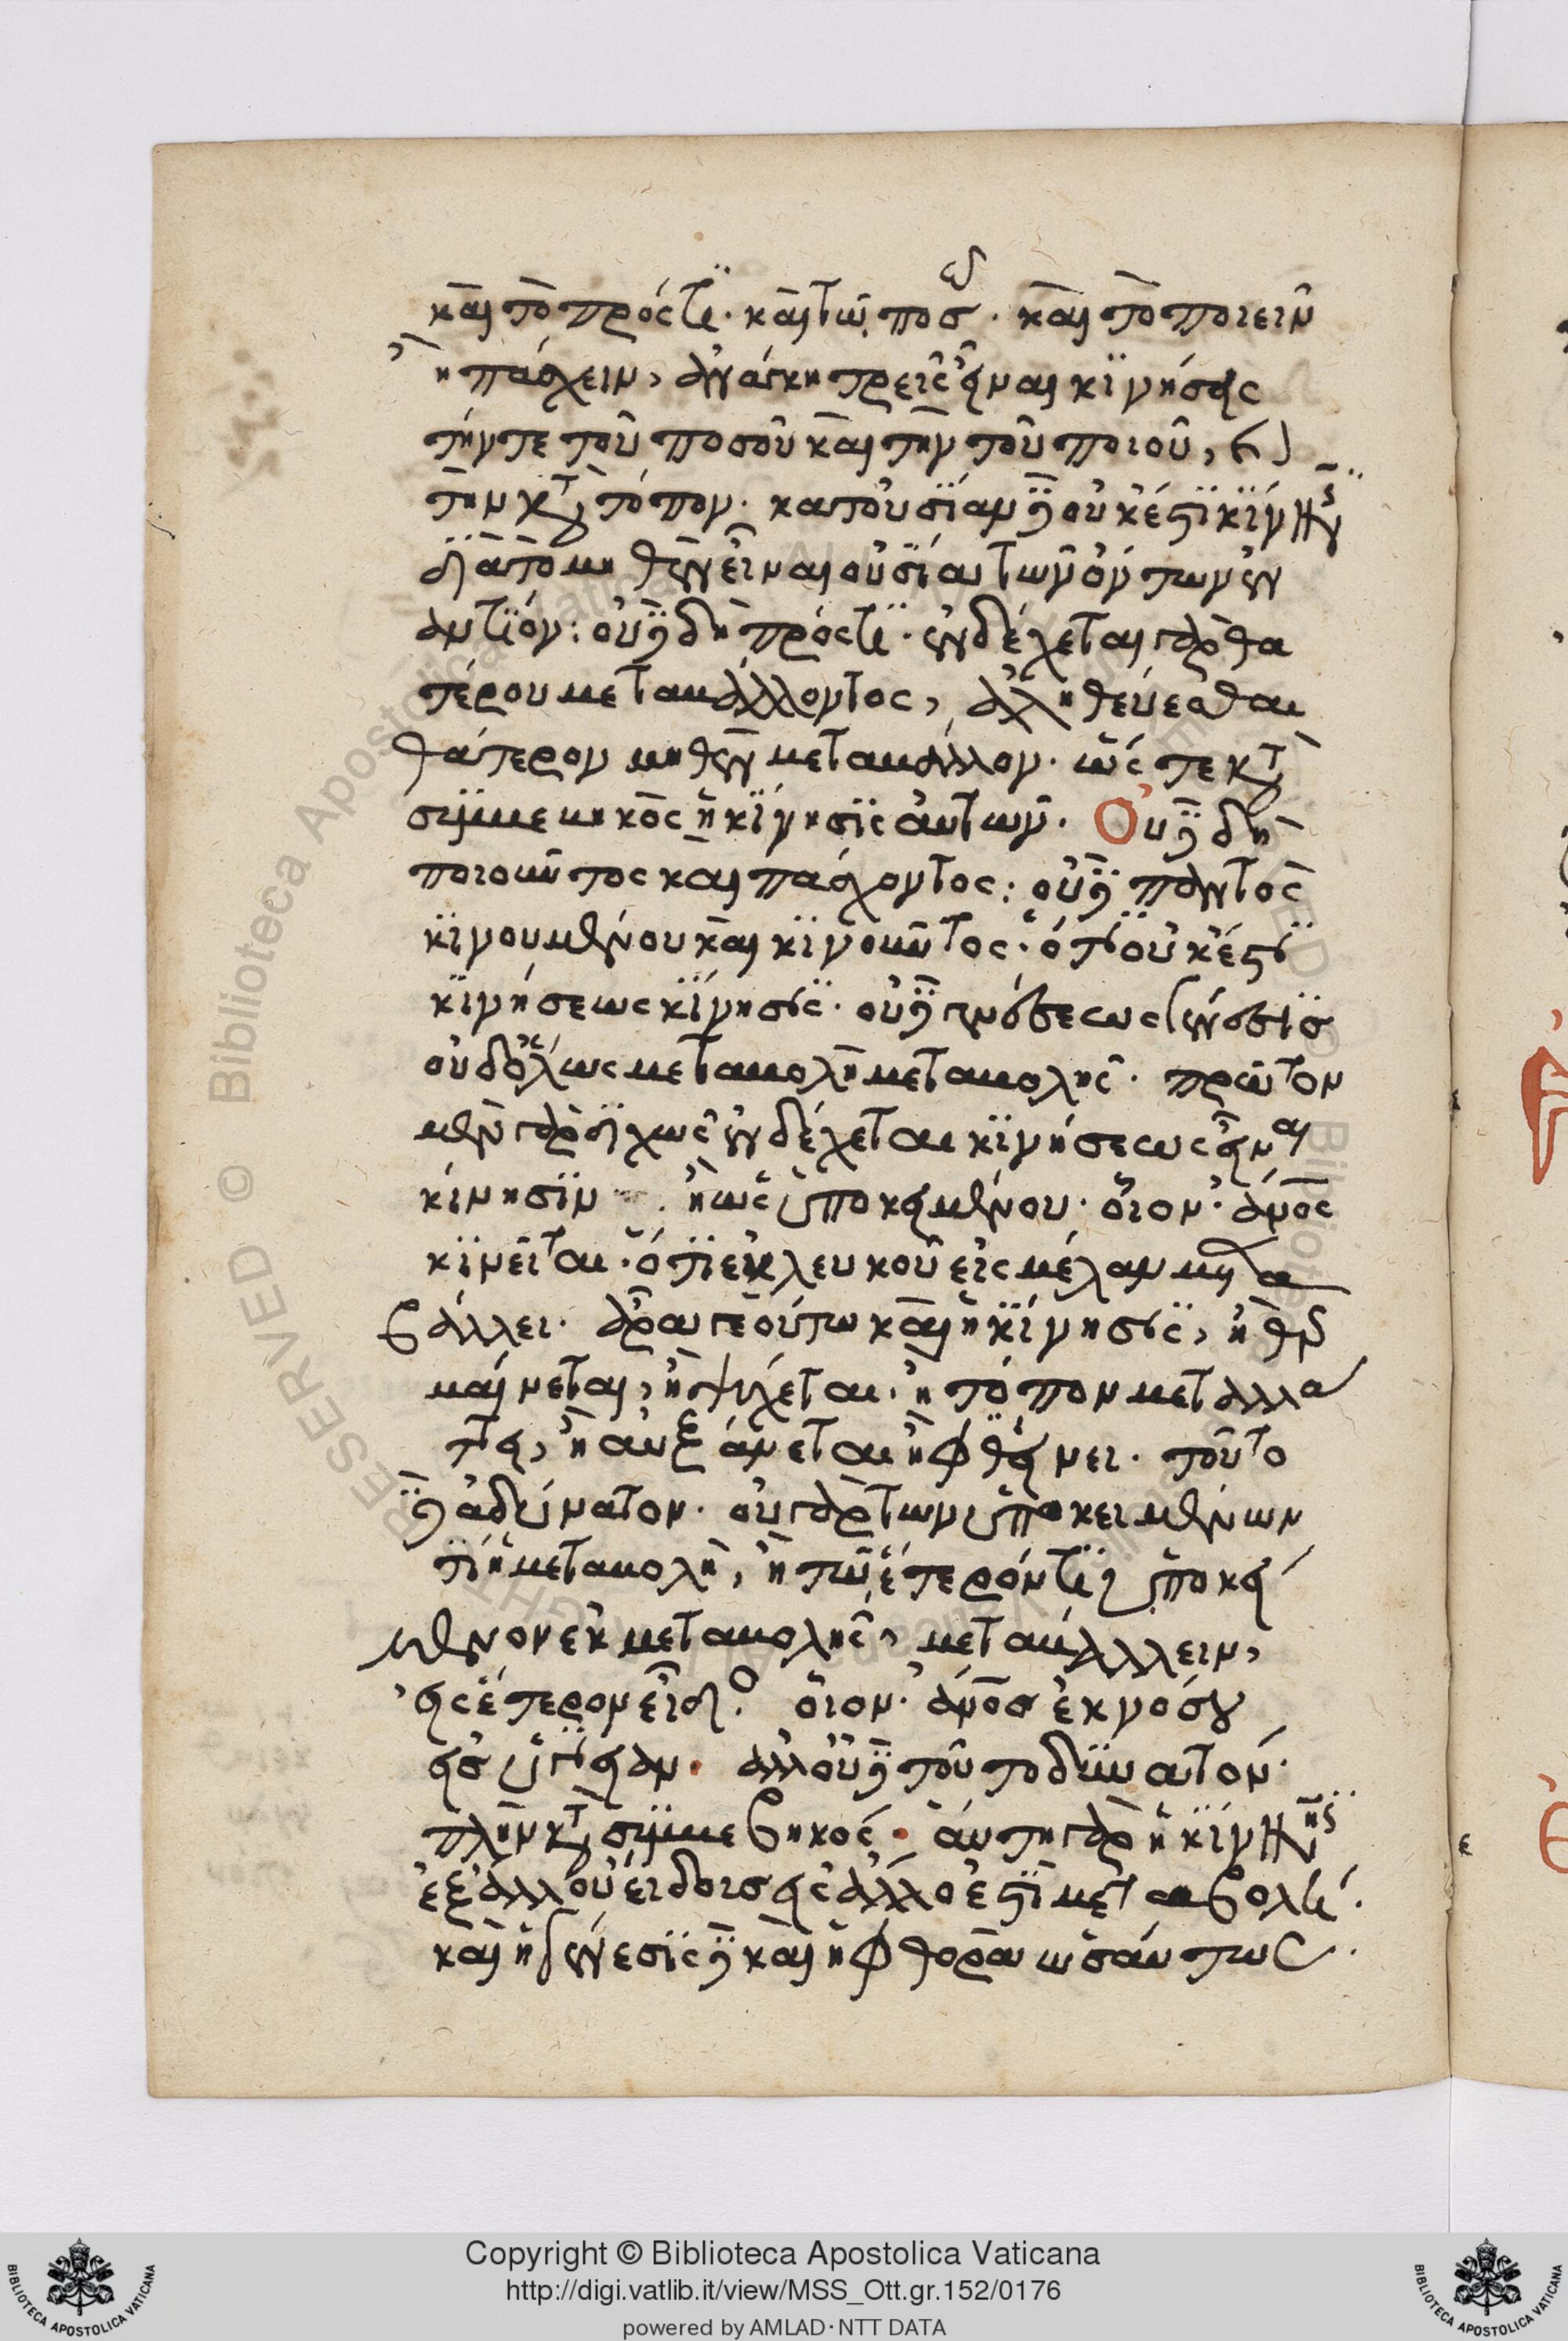 καὶ τὸ πρός τϊ· καὶ τῶ ποσῶ. καὶ τὸ ποιεῖν
ἢ πάσχειν, ἀνάγκη τρεῖς εἶναι κϊνήσεις
τήν τε τοῦ ποσοῦ καὶ τὴν τοῦ ποιοῦ, καὶ
τὴν κατὰ τόπον. κατ' οὐσΐαν δὲ οὐκ έστϊ κΐνησις
διὰ τὸ μηθὲν εἶναι οὐσΐαι τῶν όντων ἐν
αντΐον: οὐδὲ δὴ πρός τϊ. ἐνδέχεται γὰρ θα
τέρου μεταβάλλοντος, ἀληθεύεσθαι
θάτερον μηθὲν μεταβάλλον. ὥς τε κατὰ
συμβεβηκὸς ἡ κΐνησϊς αὐτῶν. Οὐδὲ δὴ
ποιοῦντος καὶ πάσχοντος: οὐδὲ παντὸς
κϊνουμένου καὶ κϊνοῦντος· ὅτι οὐκ έστϊ
κϊνήσεως κΐνησϊς. οὐδὲ γενέσεως γένεσϊς
οὐδ' ὅλως μεταβολὴ μεταβολῆς. πρῶτον
μὲν γὰρ διχῶς ἐνδέχεται κϊνήσεως εἶναι
κίνησϊν . ἢ ὡς ὑποκειμένου. οἷον· άν̅ος
κϊνεῖται. ὅτϊ ἐκ λευκοῦ εἰς μέλαν μετα
βάλλει. ἆρά γε ούτω καὶ ἡ κΐνησϊς, ἢ θερ
μαίνεται, ἢ ψύχεται. ἢ τόπον μεταλλά
τει, ἢ αὐξάνεται ἢ φθείνει. τοῦτο
δὲ ἀδύνατον. οὐ γὰρ τῶν ὑποκειμένων
τΐ ἡ μεταβολὴ, ἢ τῶ ἕτερόν τϊ ὑποκεί
μενον ἐκ μεταβολῆς, μεταβάλλειν,
εἰς ἕτερον εἶδος. οἷον· άν̅οσ ἐκ νόσου
εἰσ ὑγίειαν. ἀλλ' οὐδὲ τοῦτο δϋνατόν.
πλὴν κατὰ συμβεβηκός. αὕτη γὰρ ἡ κΐνησις
ἐξ ἄλλου εἴδουσ εἰς ἄλλο ἐστϊ μεταβολή.
καὶ ἡ γένεσϊς δὲ καὶ ἡ φθορὰ ὡσαύτως.
Copyright © Biblioteca Apostolica Vaticana
http://digi.vatlib.it/view/MSS_Ott.gr.152/0176
powered by AMLAD · NTT DATA